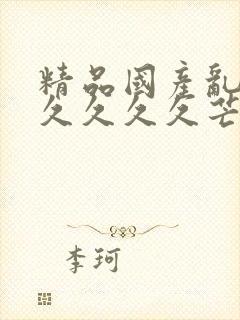 精品國產亂
久久久久芒
李珂